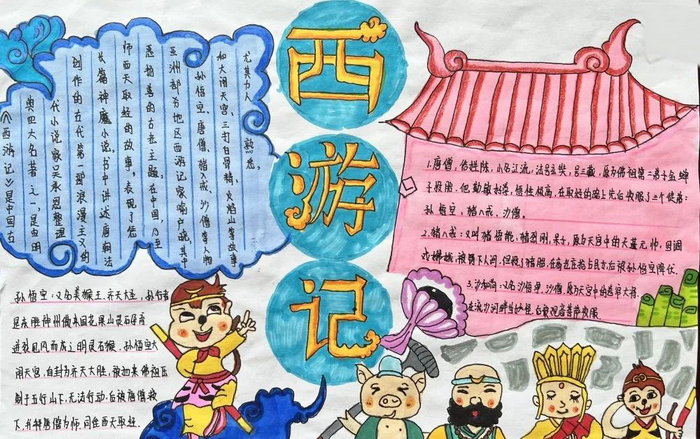 西游记
《西游记》是中国古
典四大名著之一,是由明
代小说家吴承恩整理
创作的古代第一部浪漫主义的
长篇神魔小说,书中讲述唐朝法
师西天取经的故事,表现了惩
恶扬善的古老主题。在中国,乃至
亚洲部分地区西游记家喻户晓,其中
孙悟空、唐僧、猪八戒、沙僧等人物
和大闹天宫、三打白骨精、火焰山等故事
尤其为人熟悉。
1.唐僧,俗姓陈,小名江流,法号玄奘,号三藏,原为佛祖第二弟子金蝉
子投胎,但勤敏好学,悟性极高,在取经的路上先后收服了三个徒弟:
孙悟空,猪八戒,沙僧。
2.猪八戒:又叫猪悟能,猪刚,呆子,原为天宫中的天蓬元帅,因调
戏嫦娥,被罚下人间,但投了猪胎,在高老庄抢占民女,后被孙悟空降伏。
3.沙和尚:又名沙悟净,沙僧,原为天宫中的卷帘大将,
在流沙河畔当妖怪,后观音菩萨收服
孙悟空:又名美猴王、齐天大圣,孙行者
是东胜神州傲来国花果山灵石孕育
迸裂见风而成之明灵石猴。孙悟空大
闹天宫,自封为齐天大胜,被如来佛祖压
制于五行山下,无法行动,后被唐僧救
下,并拜唐僧为师,同往西天取经.